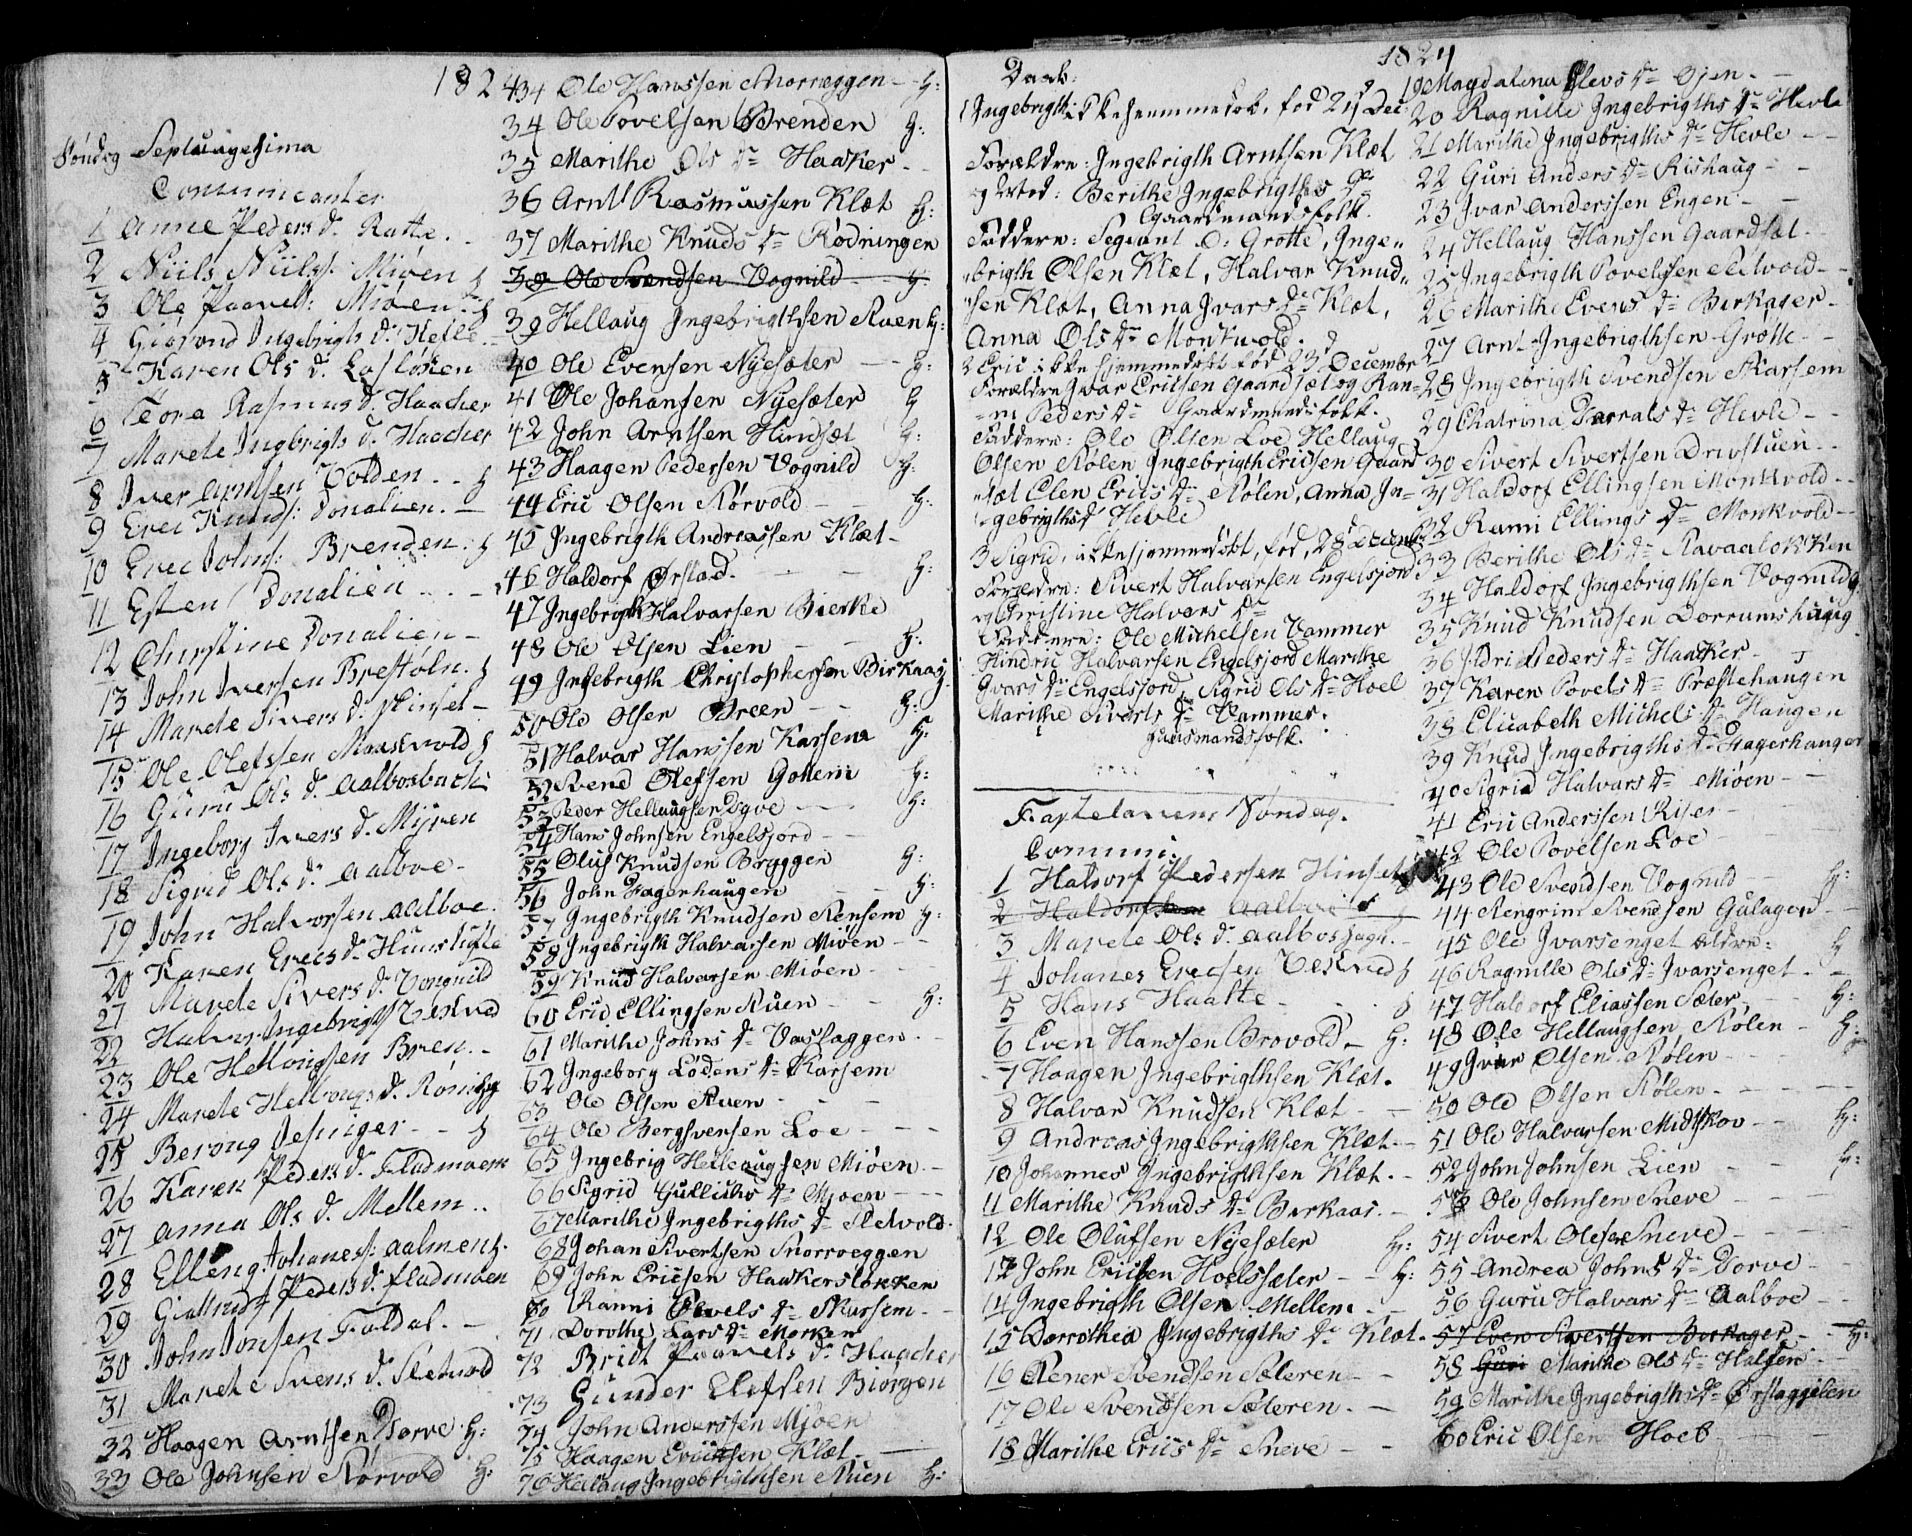 182
Søndag Septuagesima
Communicanter
1 Anne Peders d. Ratte.
2 Niils Niilss: Miøen
3 Ole Paavels: Miøen
4 Giørond Ingebrigts d. Helle
5 Karen Ols d. Losløkken
6 Rasmus d. Haacher
7 Marete Ingbrigts d. Haacher
8 Iver Arntsen Volden
9 Erec Knuds: Donalien
10 Erec Johns: Brenden
11 Esten Donalien
12 Christine Donalien
13 John Iversen Brestøln
14 Marete Sivers d. Hinset
15 Ole Olefsen Maaskvold
16 Guru Ols d. Aalbosbach
17 Ingeborg Ivers d. Myren
18 Sigrid Ols d. Aalboe
19 John Halvorsen Aalboe
20 Karen Erecs d. Hunsligte
21 Marete Sivers d. Vongnild
22 Halvor Ingebrigts Vekved
23 Ole Hellougsen Bren
24 Marete Hellougs d. Røning
25 Beroug Jesinger
26 Karen Peders d. Fladmoen
27 Anna Ols d. Mellem
28 Elleng Johaness: Aalmen
29 Giøttrud Peders d. Fladmoen
30 John Jonsen Faldal
31 Marete Svens d. Sletvold
32 Haagen Arntsen Dorve H:
33 Ole Johnsen Nørvold H:
434 Ole Hanssen Snorreggen H:
34 Ole Povelsen Brenden H:
35 Marithe Ols Dr Haaker
36 Arnt Rasmussen Klæt H:
37 Marithe Knuds Dr Rødningen
38 Ole Svendsen Vognild H:
39 Hellaug Ingebrigthsen Ruen H:
40 Ole Evensen Nyesæter H:
41 Ole Johansen Nyesæter H
42 John Arntsen Hindsæt H:
43 Haagen Pedersen Vognild H:
44 Eric Olsen Nørvold H:
45 Ingebrigth Andreassen Klæt
46 Haldorf Ørstad H:
47 Ingebrigth Halvarsen Bierke
48 Ole Olsen Lien H:
49 Ingebrigth Christophersen Birkaag
50 Ole Olsen Breen H:
51 Halvar Hanssen Karsem H:
52 Svend Olefsen Gottem H:
53 Peder Hellaugsen Dove H:
54 Hans Johnsen Engelsjord
55 Oluf Knudsen Bryggen H:
56 John Fagerhaugen H:
57 Ingebrigth Knudsen Stensem H:
58 Ingebrigth Halvarsen Miøen
59 Knud Halvarsen Miøen
60 Eric Ellingsen Ruen H:
61 Marithe Johns Dr Vasslaggen
62 Ingeborg Lødens Dr Karsem
63 Ole Olsen Ruen
64 Ole Bergsvensen Loe
65 Ingebrig Hellaugsen Miøen
66 Sigrid Gullichs Dr Mjoen
67 Marithe Ingebrigths Dr Sletvold
68 Johan Sivertsen Snorroeggen
69 John Ericsen Haakersløkken
70 Ranni Povels Dr Skarsem
71 Dorothe Lars Dr Morken
72 Bridt Paavels Dr Haacher
73 Gunder Elefsen Biørgen
74 John Anderssen Mjøen
75 Haagen Ericksen Klæt
76 Hellaug Ingebrigthsen Ruen H:
1824
Daab:
1 Ingebrigth ikke hjemmedøb. fød 21 Dec:
Forældre: Ingebrigth Arntsen Klæt
og Berithe Ingebrigths Dr
Gaardmandsfolk.
Faddere: Segeant O: Grotte, Inge-
brigth Olsen Klæt, Halvar Knud-
sen Klæt, Anna Ivars Dr Klæt,
Anna Ols Dr Monkvold.
2 Eric ikke hjemmedøbt fød 23 December
Forældre Ivar Ericsen Gaardsæt og Ran-
ni Peders Dr Gaardmandsfolk.
Faddere: Ole Olsen Loe Hellaug
Olsen Stølen Ingebrigth Ericsen Gaard
sæt Elen Erics Dr Stølen, Anna In-
gebrigthsdr Hevle
3 Sigrid, ikke hjemmedøbt, fød, 28 Decemb
Forældre: Sivert Halvarsen Engelsjord
og Christine Halvars Dr
Faddere: Ole Michelsen Vammer
Hindric Halvarsen Engelsjord Marithe
Ivars Dr Engelsjord, Sigrid Ols Dr Hoel
Marithe Siverts Dr Vammer.
Huusmandsfolk.
Fastelavens Søndag.
Communi:
1 Haldorf Pedersen Hinset
2 Haldorf Aalboe
3 Marete Ols d. Aalboshagn
4 Johanes Erecsen Vekved
5 Hans Haatte
6 Even Hanssen Brovold H:
7 Haagen Ingebrigthsen Klæt
8 Halvar Knudsen Klæt
9 Andreas Ingebrigthsen Klæt
10 Johannes Ingebrigthsen Klæt
11 Marithe Knuds Dr Birkaas
12 Ole Olufsen Nyesæter H:
12 John Ericsen Hoelssæter H:
14 Ingebrigth Olsen Mellem
15 Dorothea Ingebrigths Dr Klæt
16 Rener Svendsen Sæteren
17 Ole Svendsen Sæteren
18 Marithe Erics Dr Sneve
19 Magdalena Olevs Dr Øien
20 Ragnille Ingebrigths Dr Hevle
21 Marithe Ingebrigths Dr Hevle
22 Guri Anders Dr Rishaug
23 Ivar Anderssen Engen
24 Hellaug Hanssen Gaardsæt
25 Ingebrigth Povelssen Sletvold
26 Marithe Evens Dr Birkager
27 Arnt Ingebrigthsen Grotte
28 Ingebrigth Svendsen Skarsem
29 Chatrina Harrals Dr Hevle
30 Sivert Sivertsen Drivstuen
31 Haldorf Ellingsen Monkvold
32 Ranni Ellings Dr Monkvold
33 Berithe Ols Dr Ravaaløkken
34 Haldorf Ingebrigthsen Vognild
35 Knud Knudsen Dorrumshaug
36 Idri Peders Dr Haaker
37 Karen Povels Dr Præstehaugen
38 Elisabeth Michels Dr Haugen
39 Knud Ingebrigths Dr Fagerhaugen
40 Sigrid Halvars Dr Miøen
41 Eric Anderssen Riser
42 Ole Povelsen Loe
43 Ole Svendsen Vognild H:
44 Rengrim Svendsen Gulagen
45 Ole Ivarsenget ældre: H
46 Ragnille Ols Dr Ivarsenget
47 Haldorf Eliassen Sæter H:
48 Ole Hellaugsen Stølen H:
49 Ivar Olsen Stølen
50 Ole Olsen Stølen
51 Ole Halvarsen Midtskov H:
52 John Johnsen Lien H:
53 Ole Johnsen Sneve
54 Sivert Olefsen Sneve
55 Andrea Johns Dr Dorve
56 Guru Halvars Dr Aalboe
57 Even Sivertsen Birkager H:
58 Guri Marithe Ols Dr Halsen
59 Marithe Ingebrigths Dr Ørstaggjelen
60 Eric Olsen Hoeb